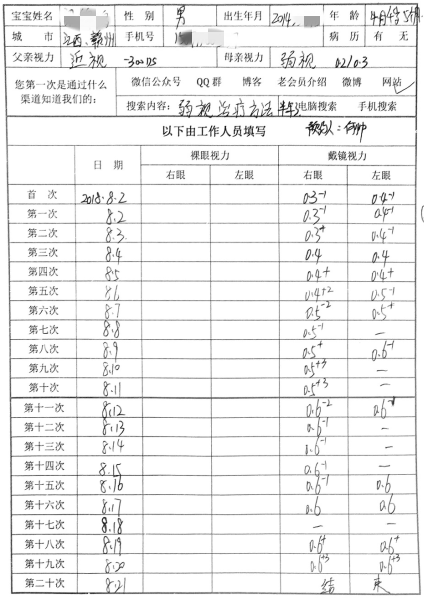 宝宝姓名 性别 男 出生年月 2014. 年龄 4岁
城市 江西 赣州 手机号 病历 有 无
父亲视力 近视 -300DS 母亲视力 弱视 0.2/0.3
您第一次是通过什么渠道知道我们的: 微信公众号 QQ群 博客 老会员介绍 微博 网站✓
搜索内容: 弱视治疗方法 电脑搜索 手机搜索
以下由工作人员填写
日期 裸眼视力 戴镜视力
右眼 左眼 右眼 左眼
首次 2018.8.2 0.3⁻¹ 0.4⁻¹
第一次 8.2 0.3⁻¹ 0.4⁻¹
第二次 8.3 0.3⁺ 0.4⁻¹
第三次 8.4 0.4 0.4
第四次 8.5 0.4⁺ 0.4⁺
第五次 8.6 0.4⁺² 0.5⁻¹
第六次 8.7 0.5⁻² 0.5⁺
第七次 8.8 0.5⁻¹ —
第八次 8.9 0.5⁺ 0.6⁻¹
第九次 8.10 0.5⁺³ —
第十次 8.11 0.5⁺³ —
第十一次 8.12 0.6⁻² 0.6⁻¹
第十二次 8.13 0.6⁻¹ —
第十三次 8.14 0.6⁻¹ —
第十四次 8.15 0.6⁻¹ —
第十五次 8.16 0.6⁻¹ 0.6
第十六次 8.17 0.6 0.6
第十七次 8.18 — —
第十八次 8.19 0.6⁺ 0.6⁺
第十九次 8.20 0.6⁺³ 0.6⁺³
第二十次 8.21 结 束